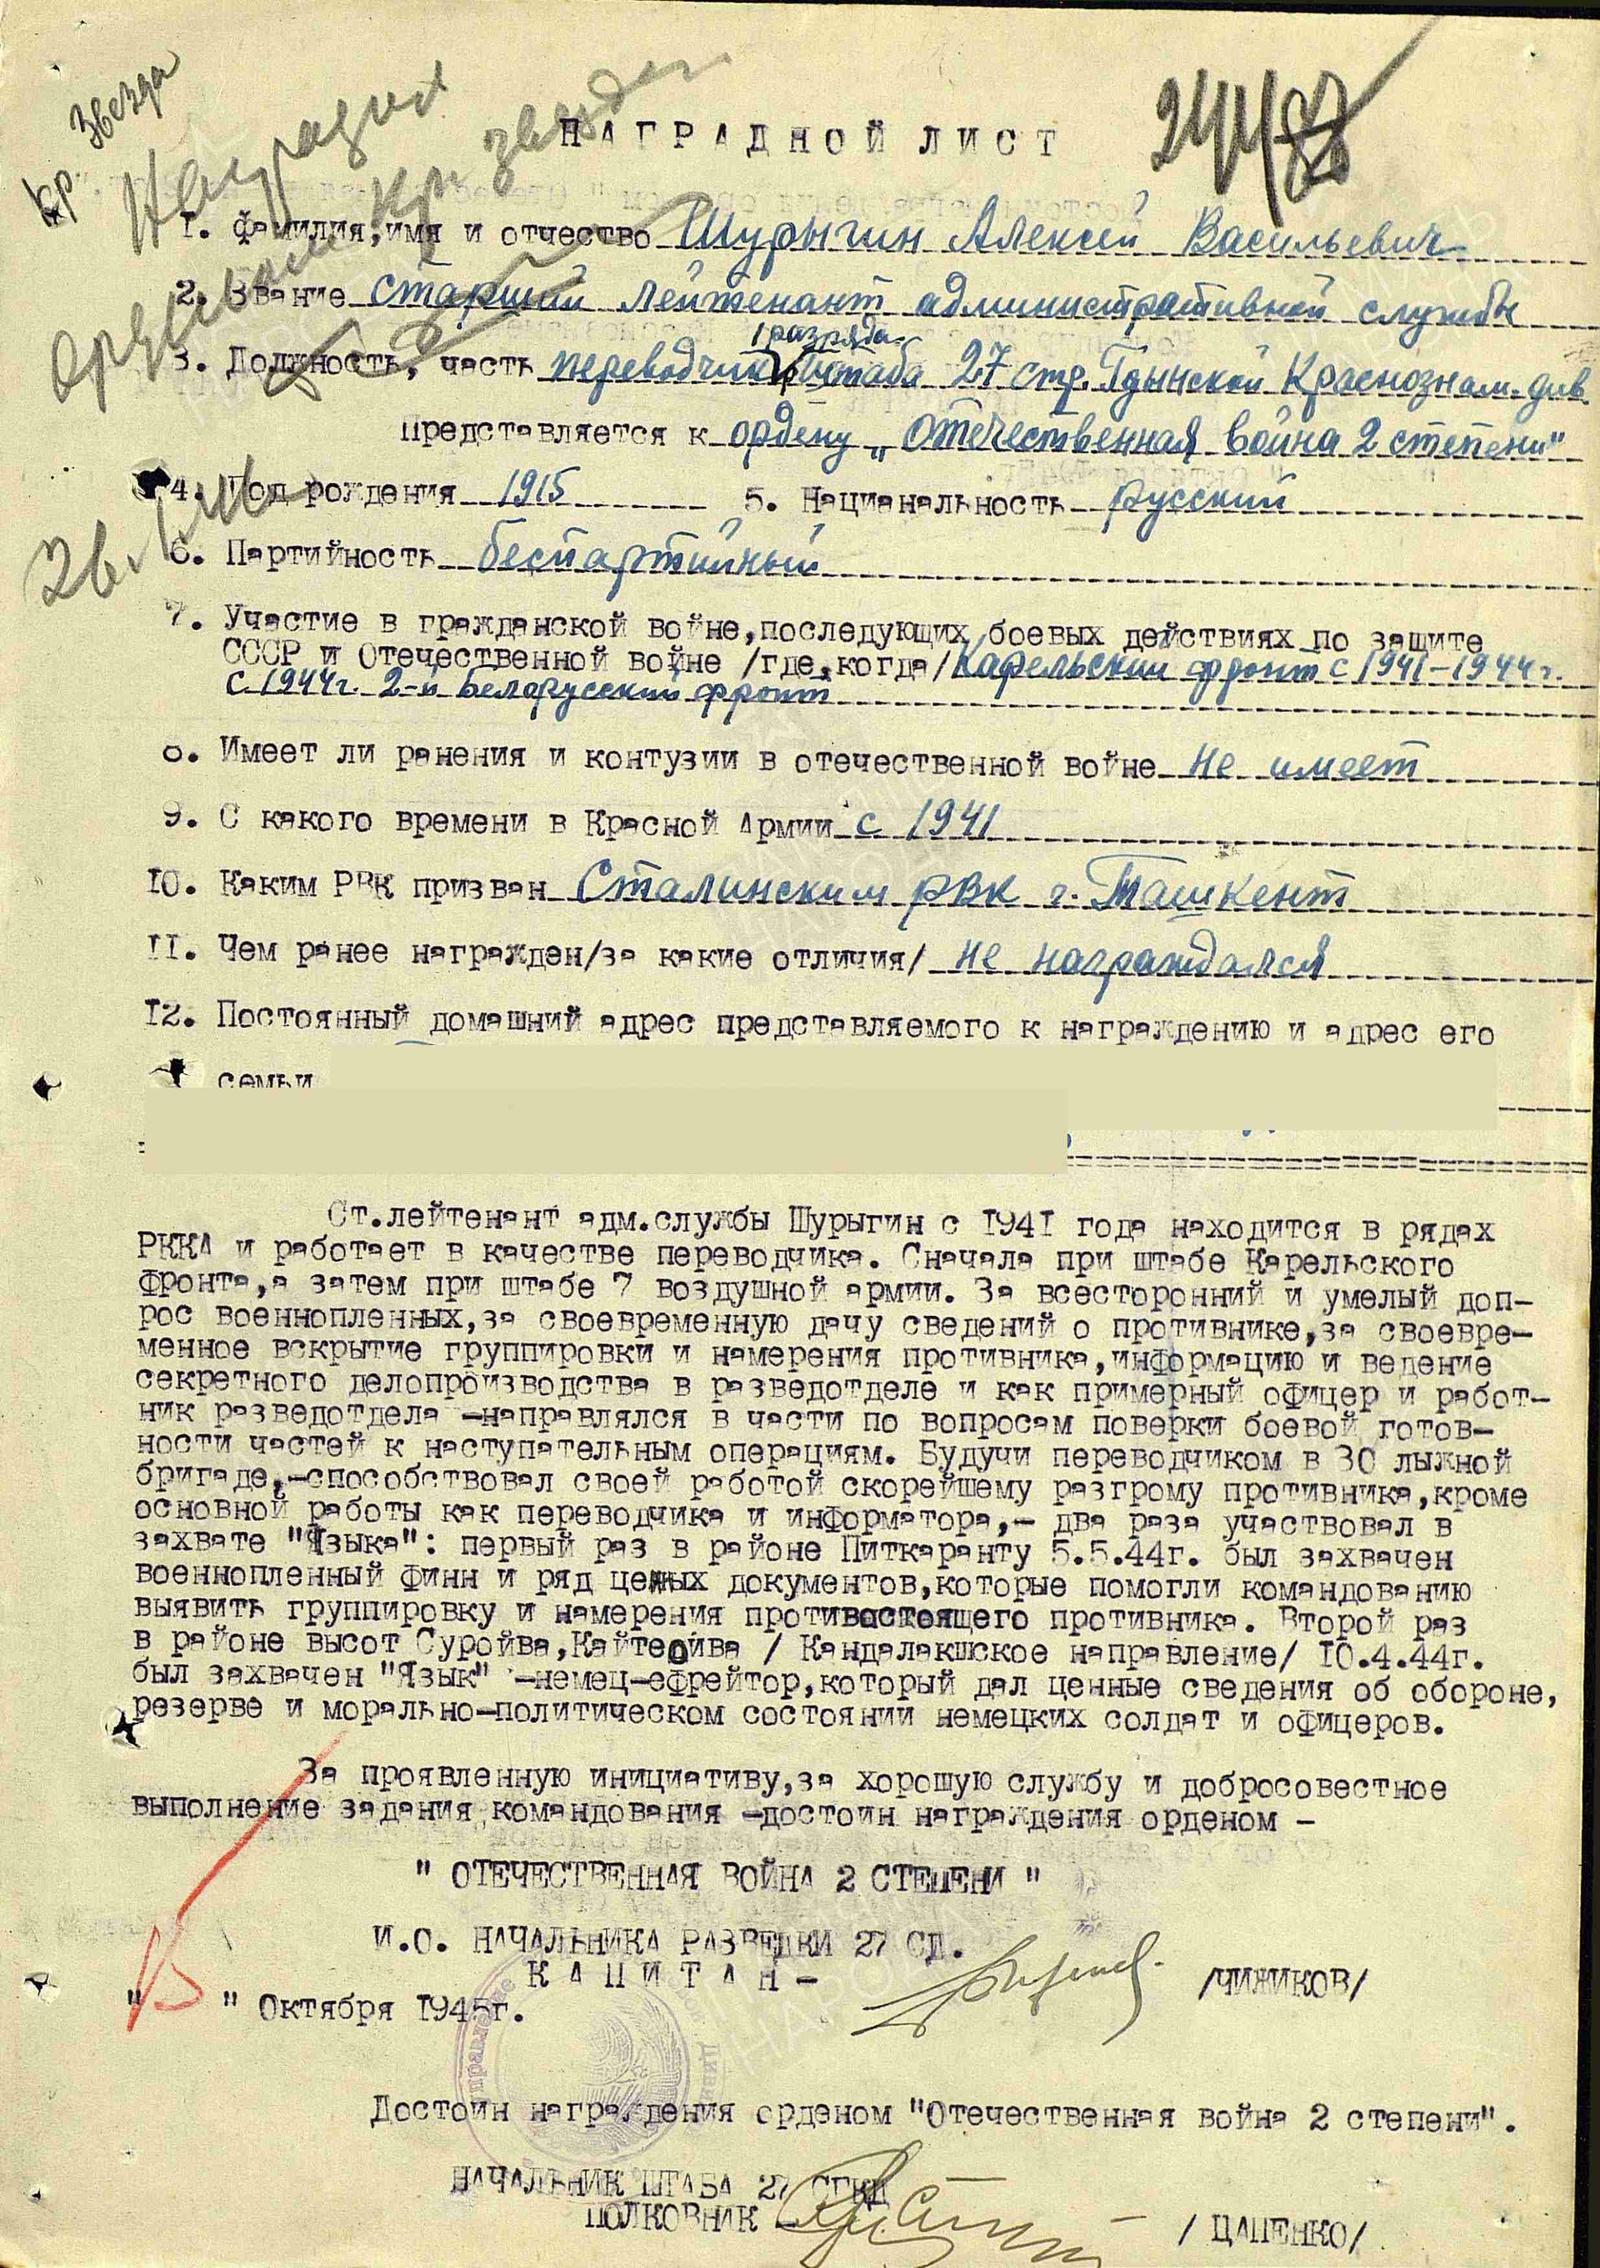 Кр. Звезда
Награжден
орденом Кр. звезда
НАГРАДНОЙ ЛИСТ
1. Фамилия,имя и отчество Шурыгин Алексей Васильевич
2. Звание старший лейтенант административной службы
1 разряда
3. Должность, часть переводчик штаба 27 стр. Гдынской Краснознам. див.
Представляется к ордену „Отечественная война 2 степени"
4. Год рождения 1915 5. Нацианальность русский
6. Партийность беспартийный
7. Участие в гражданской войне,последующих боевых действиях по защите
СССР и Отечественной войне /где,когда/ Карельский фронт с 1941-1944г.
с 1944г. 2-й Белорусский фронт
8. Имеет ли ранения и контузии в отечественной войне не имеет
9. С какого времени в Красной Армии с 1941
10. Каким РВК призван Сталинским РВК г. Ташкент
11. Чем ранее награжден/за какие отличия/ не награждался
12. Постоянный домашний адрес представляемого к награждению и адрес его
семьи
Ст.лейтенант адм.службы Шурыгин с 1941 года находится в рядах
РККА и работает в качестве переводчика. Сначала при штабе Карельского
фронта,а затем при штабе 7 воздушной армии. За всесторонний и умелый доп-
рос военнопленных,за своевременную дачу сведений о противнике,за своевре-
менное вскрытие группировки и намерения противника,информацию и ведение
секретного делопроизводства в разведотделе и как примерный офицер и работ-
ник разведотдела -направлялся в части по вопросам поверки боевой готов-
ности частей к наступательным операциям. Будучи переводчиком в 30 лыжной
бригаде,-способствовал своей работой скорейшему разгрому противника,кроме
основной работы как переводчика и информатора,- два раза участвовал в
захвате "Языка": первый раз в районе Питкаранту 5.5.44г. был захвачен
военнопленный финн и ряд ценых документов,которые помогли командованию
выявить группировку и намерения противостоящего противника. Второй раз
в районе высот Суройва,Кайтеойва / Кандалакшское направление/ 10.4.44г.
был захвачен "Язык" -немец-ефрейтор,который дал ценные сведения об обороне,
резерве и морально-политическом состоянии немецких солдат и офицеров.
За проявленную инициативу,за хорошую службу и добросовестное
выполнение задания командования -достоин награждения орденом -
" ОТЕЧЕСТВЕННАЯ ВОЙНА 2 СТЕПЕНИ "
И.О. НАЧАЛЬНИКА РАЗВЕДКИ 27 СД.
КАПИТАН - /ЧИЖИКОВ/
" " Октября 1945г.
Достоин награждения орденом "Отечественная война 2 степени".
НАЧАЛЬНИК ШТАБА 27 СГКД
ПОЛКОВНИК - / ЦАПЕНКО/